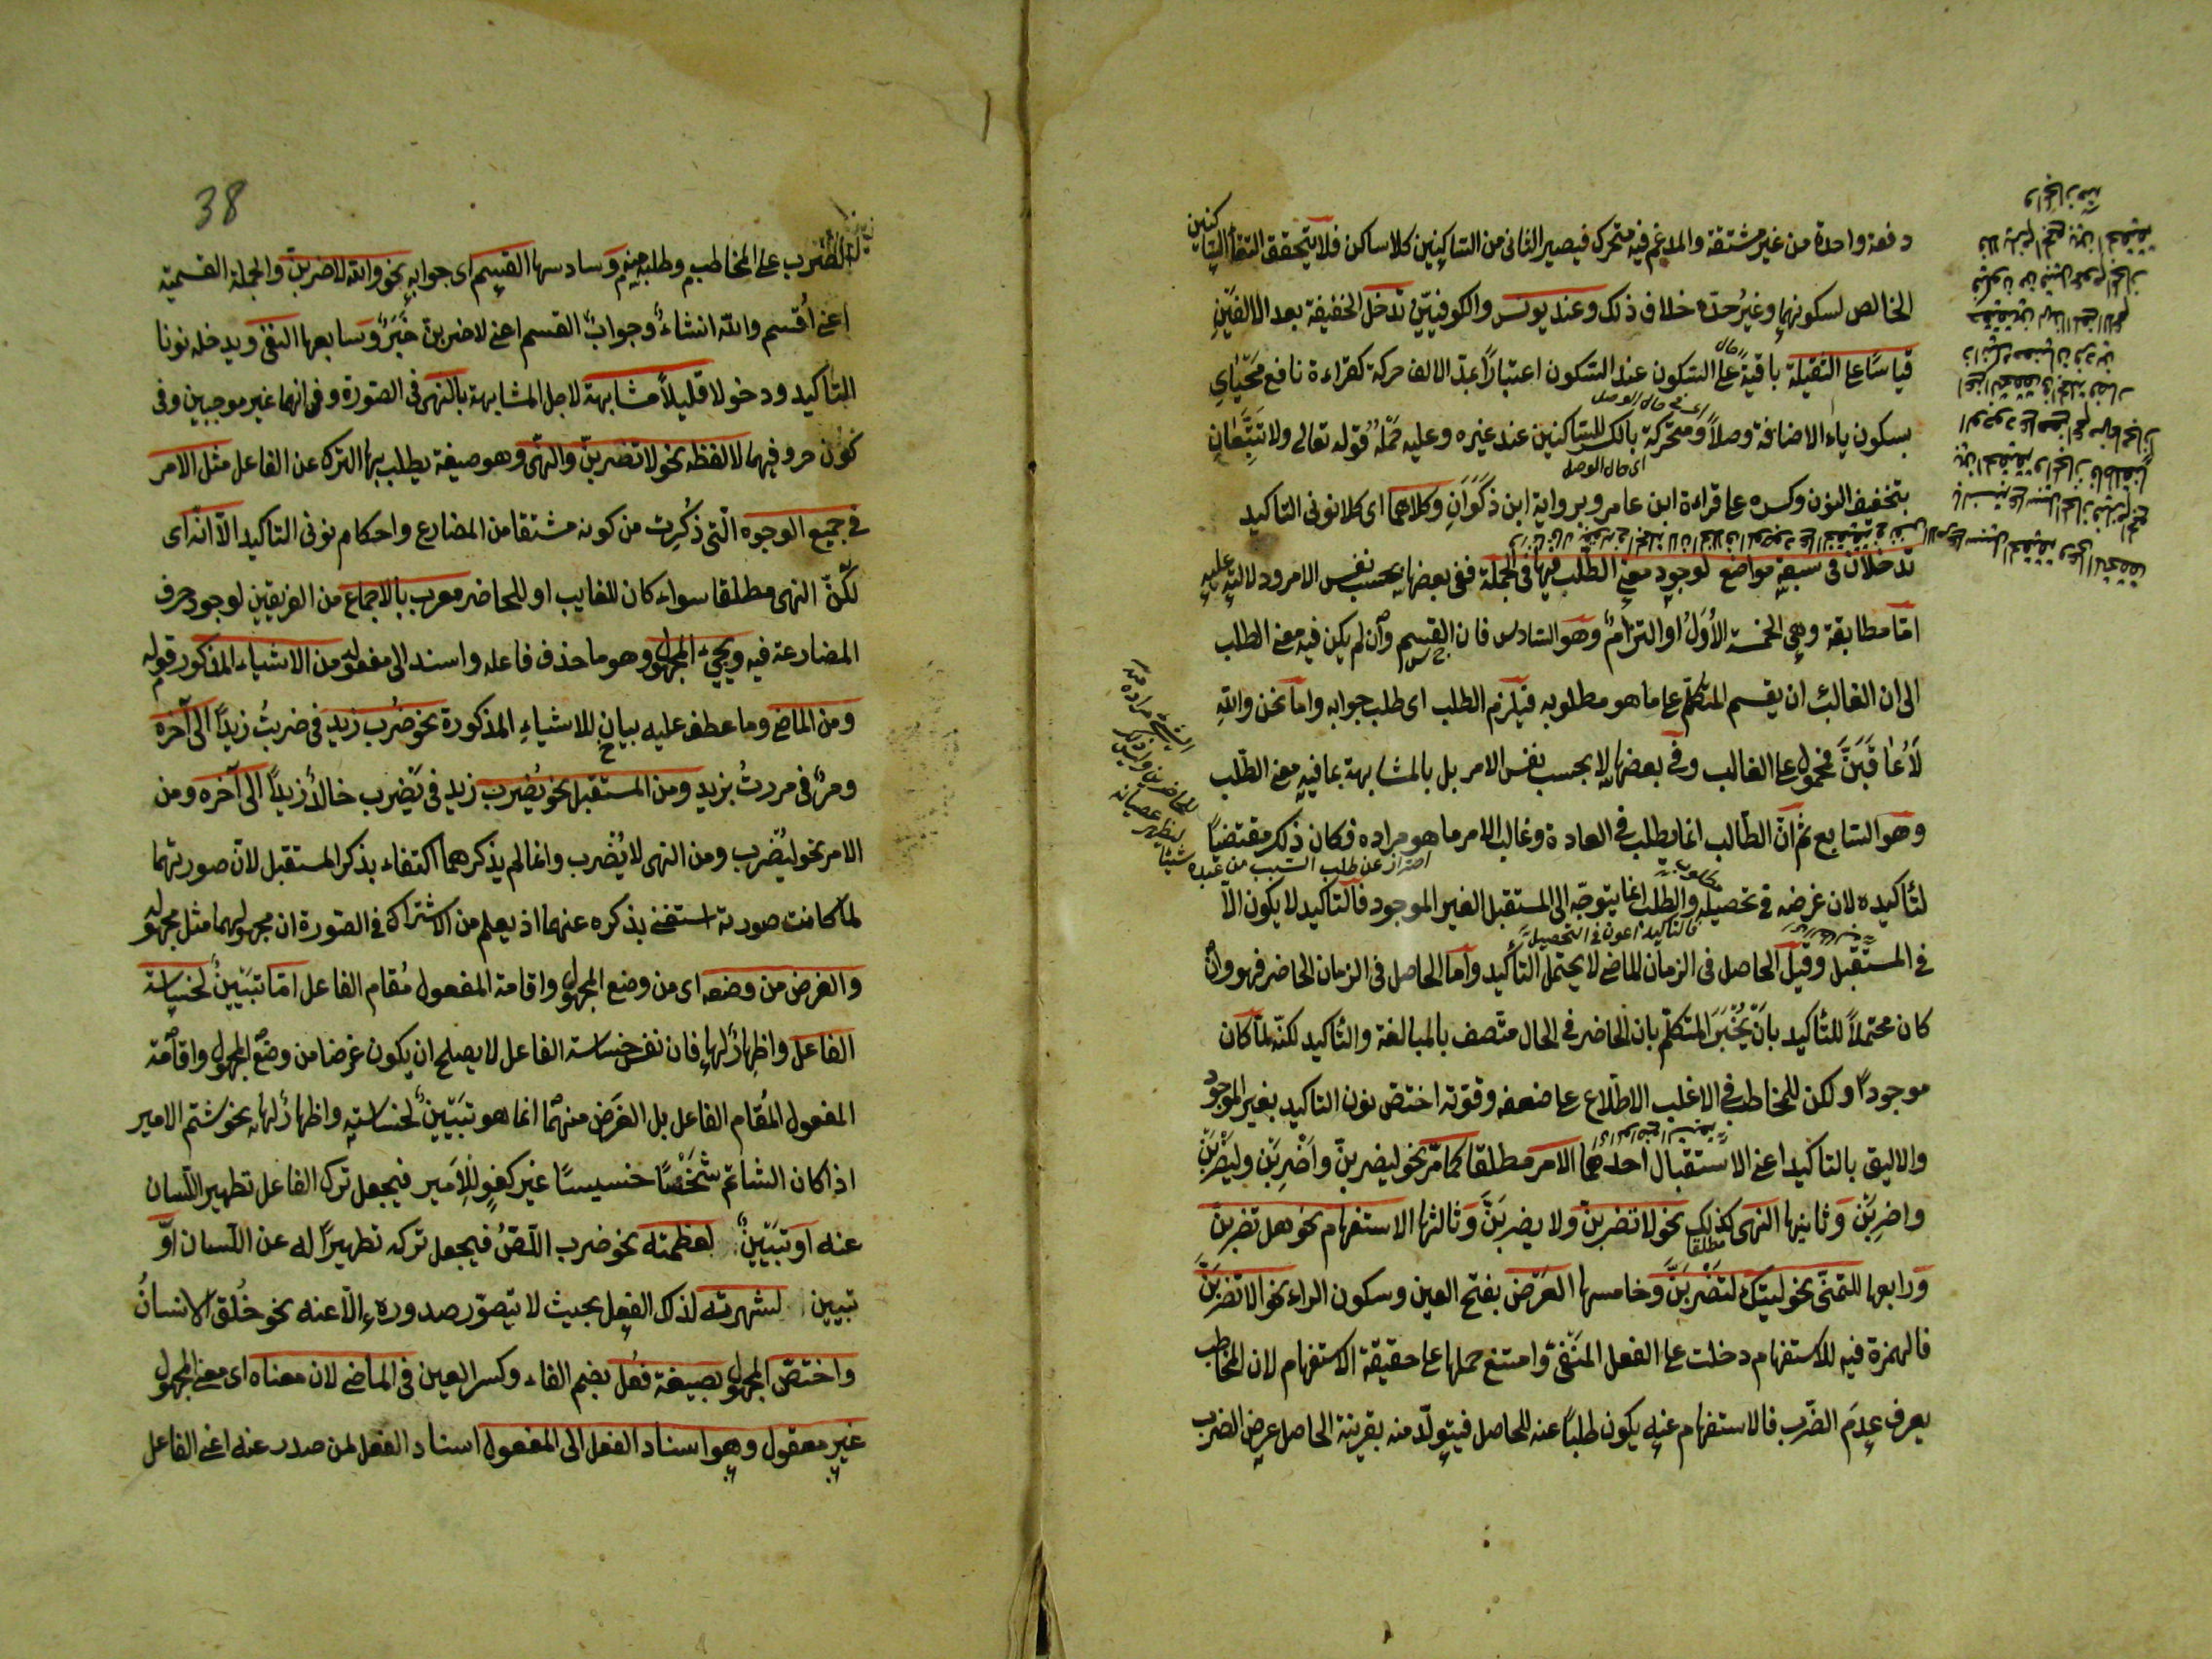 دفعة واحدة من غير مشتقة والمدغم فيه متحرك فيصير الثانى من الساكنين كلا ساكن فلا يتحقق التقاء الساكنين
الخالص لسكونهما وغير حدّه خلاف ذلك وعند يونس والكوفيّين تدخل الخفيفة بعد الالفين
قياسًا على الثقيلة باقية على السكون عند السكون اعتبارًا بمدّ الالف حركة كقراءة نافع محياى
بسكون ياء الاضافة وصلاً ومتحركة بالكسر للساكنين عند غيره وعليه حمل قوله تعالى ولا تتبعان
بتخفيف النون وكسره على قراءة ابن عامر وبرواية ابن ذكوان وكلاهما اى كلا نونى التاكيد
تدخلان فى سبعة مواضع لوجود معنى الطلب فيها فى الجملة ففى بعضها بحسب نفس الامر ودلالته عليه
امّا مطابقة وهى الخمسة الأُوَل او التزامٌ وهو السادس فان القسم وان لم يكن فيه معنى الطلب
الى ان الغالب ان يقسم المتكلّم على ما هو مطلوبه فيلزم الطلب اى طلب جوابه واما نحن والله
لَأُعاقبَنَّ فمحمول على الغالب وفى بعضها لا بحسب نفس الامر بل بالمشابهة بما فيه معنى الطلب
وهو السابع ثمّ انّ الطالب انما يطلب فى العادة وغالب الامر ما هو مراده فكان ذلك مقتضيًا
احتراز عن طلب السبب من عبده شيئا
لتأكيده لان غرضه فى تحصيله والطلب انما يتوجّه الى المستقبل الغير الموجود فالتاكيد لا يكون الّا
فى المستقبل وقيل الحاصل فى الزمان الماضى لا يحتمل التأكيد واما الحاصل فى الزمان الحاضر فهو وان
كان محتملاً للتأكيد بان يُخْبَر المتكلّم بان الحاضر فى الحال متّصف بالمبالغة والتأكيد لكنّه لمّا كان
موجودًا ولكن للمخاطب فى الاغلب الاطّلاع على ضعفه وقوّته اختصّ نون التاكيد بغير الموجود
والاليق بالتاكيد اعنى الاستقبال احدهما الامر مطلقا كما مرّ نحو ليضربنّ واضربنّ وليضربن
واضربن وثانيها النهى كذلك نحو لا تضربنّ ولا يضربنّ وثالثها الاستفهام نحو هل تضربنّ
ورابعها للتمنّى نحو ليتك لتضربنّ وخامسها العَرْض بفتح العين وسكون الراء نحو الا تضربنّ
فالهمزة فيه للاستفهام دخلت على الفعل المنفىّ وامتنع حملها على حقيقة الاستفهام لان المخاطب
يعرف عدم الضرب فالاستفهام عنه يكون طلبًا عنه للحاصل فيتولّد منه بقرينة الحاصل عرض الضرب
38
الضرب على المخاطب وطلبه منه وسادسها القسم اى جوابه نحو والله لاضربنّ والجملة القسمية
اعنى اُقسم والله انشاءٌ وجواب القسم اعنى لاضربنّ خبرٌ وسابعها النفى ويدخله نونا
التاكيد ودخولا قليلاً مشابهة لاجل المشابهة بالنهى فى الصورة وفى انهما غير موجبين وفى
كون حرفيهما لا لفظه نحو لا تضربنّ والنهى وهو صيغة يطلب بها الترك عن الفاعل مثل الامر
فى جميع الوجوه الّتى ذكرت من كونه مشتقا من المضارع واحكام نونى التاكيد الّا انّه اى
لكنّ النهى مطلقا سواء كان للغايب او للحاضر معرب بالاجماع من الفريقين لوجود حرف
المضارعة فيه ويجىء المجهول وهو ما حذف فاعله واسند الى مفعوله من الاشياء المذكور قوله
ومن الماضى وما عطف عليه بيان للاشياء المذكورة نحو ضُرب زيد فى ضربتُ زيدًا الى آخره
ومرّ فى مررتُ بزيد ومن المستقبل نحو يُضرب زيد فى يَضرب خالد زيدًا الى آخره ومن
الامر نحو ليُضرب ومن النهى لا يُضرب وانما لم يذكرهما اكتفاء بذكر المستقبل لانّ صورتهما
لمّا كانت صورته استغنى بذكره عنهما اذ يعلم من الاشتراك فى الصورة ان مجهولهما مثل مجهوله
والغرض من وضعه اى من وضع المجهول واقامة المفعول مُقام الفاعل امّا تبيينٌ لخساسة
الفاعل واظهارٌ لها فان نفس خساسة الفاعل لا يصلح ان يكون غرضا من وضع المجهول واقامة
المفعول المُقام الفاعل بل الغرض منهما انما هو تبيينٌ لخساسته واظهارٌ لها نحو شتم الامير
اذا كان الشاتم شخصًا خسيسًا غير كفو للامير فيجعل ترك الفاعل تطهير اللسان
عنه او تبيينٌ لعظمته نحو ضرب اللصّ فيجعل تركه تطهيرًا له عن اللسان او
تبيين لشهرته لذلك الفعل بحيث لا يتصوّر صدوره الّا عنه نحو خُلق الانسانُ
واختصّ المجهول بصيغة فُعِل بضم الفاء وكسر العين فى الماضى لان معناه اى معنى المجهول
غير معقول وهو اسناد الفعل الى المفعول اسناد الفعل لمن صدر عنه اعنى الفاعل